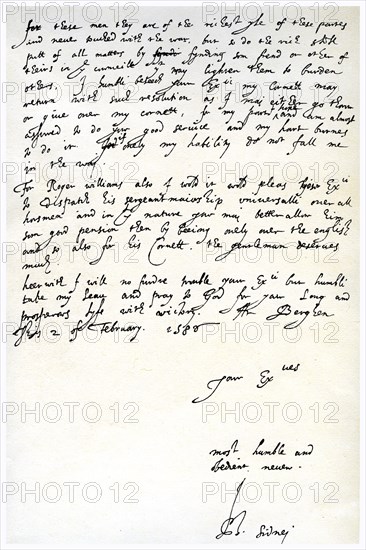 for these men they are of the richest of these partes
and never toucked with the warr, but so do the rich shift
putt of all matters by fynding som frend or other of
theirs in counceile
way lighten them to burden
others. I humbli beseech your Ex my Cornett may
return with such resolution as I may either go thorow
or give over my cornett, my horse and I am almost
assured to do you good service and my hart burnes
to do it only my hability do not fall me
in the way.
For Roger williams also I wold it wold pleas your Ex
to dispatch his sergeantmaiorship universalli over all
horsmen and in nature your may better allow him
som good pension then by beeing onely over the english
and so also for his Cornett. the gentleman deserves
much.
heerwith I will no furdre trouble your Ex but humbli
take my leav and pray to God for your long and
prosperous lyfe with victory. At Berghen
this 2 of february. 1586
your Ex
most humble and
Ph. Sidnei
PHOTO 12